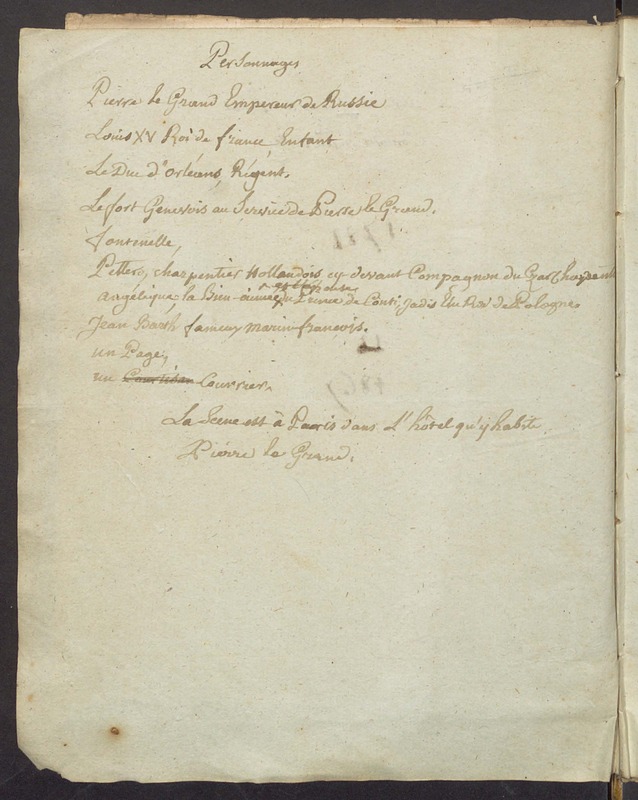 Personnages
Pierre le Grand Empereur de Russie
Louis XV Roi de france, Enfant
Le Duc d'orléans, Régent.
Le fort Genevois au Service de Pierre le Grand.
fontenelle,
Petters, charpentier Hollandois cy-devant Compagnon du Czar Charpentier
et Epouse
angélique, la bien-aimée du Prince de Conti, Jadis Elu Roi de Pologne
Jean Barth fameux marin françois.
un Page,
un Courtisan Courrier.
La Scene est à Paris dans L'hôtel qu'y habite
Pierre le Grand.